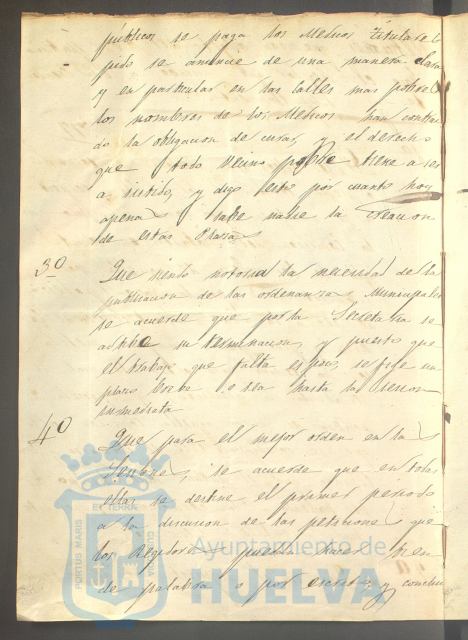 publicos se paga los Medicos titulares
pido se anuncie de una manera clara
y en particular en las calles mas pobres
los nombres de los Medicos han contrai
do la obligacion de curar, y el derecho
que todo vecino pobre tiene a ser
asistido, y digo esto por cuanto hoy
apenas sabe nadie la creacion
de estas Plazas
3º
Que siendo notoria la necesidad de la
publicacion de las ordenanzas Municipales
se acuerde que por la Secretaria se
active su terminacion, y puesto que
el trabajo que falta es poco, se fije un
plazo breve o sea hasta la sesion
inmediata
4º
Que para el mejor orden en las
Sesiones, se acuerde que en todas
ellas se destine el primer periodo
a la discusion de las peticiones que
los Regidores puedan hacer bien
de palabra o por escrito y conclui
PORTUS MARIS ET TERRÆ CUSTODIO
Ayuntamiento de
HUELVA